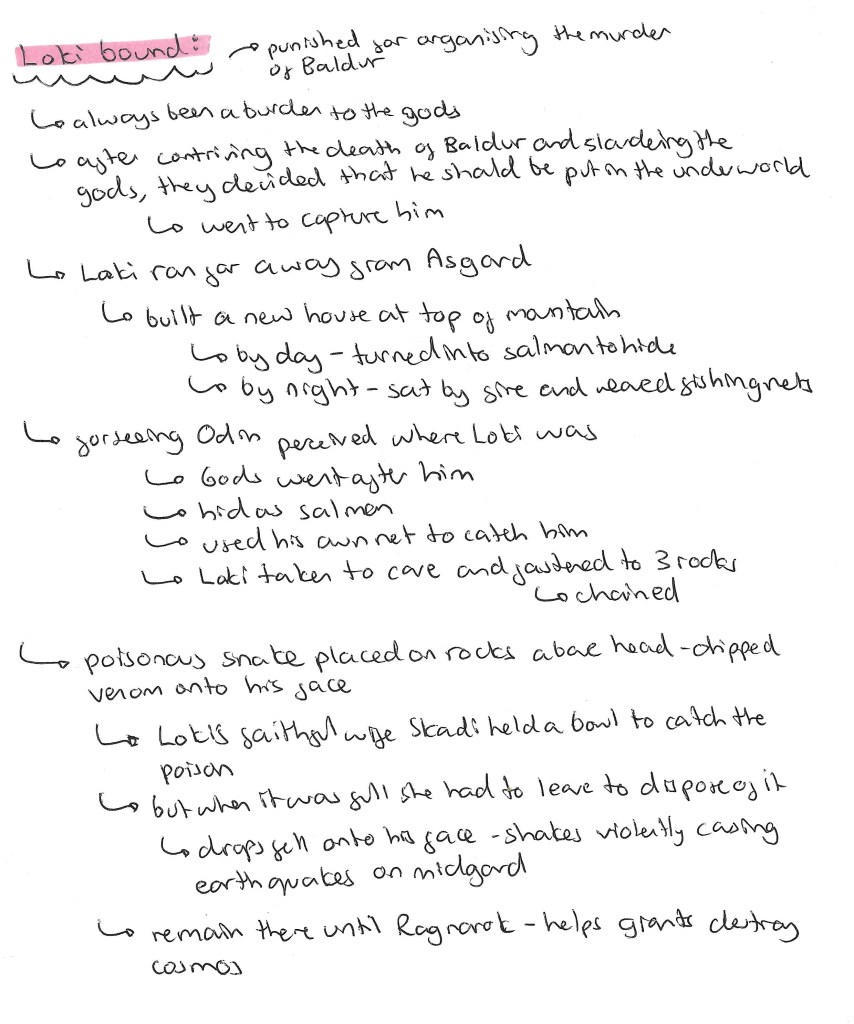 Loki bound: → punished for organising the murder
of Baldur
↳ always been a burden to the gods
↳ after contriving the death of Baldur and slandering the
gods, they decided that he should be put in the underworld
↳ went to capture him
↳ Loki ran far away from Asgard
↳ built a new house at top of mountain
↳ by day - turned into salmon to hide
↳ by night - sat by fire and weaved fishing nets
↳ forseeing Odin perceived where Loki was
↳ Gods went after him
↳ hid as salmon
↳ used his own net to catch him
↳ Loki taken to cave and fastened to 3 rocks
↳ chained
↳ poisonous snake placed on rocks above head - dripped
venom onto his face
↳ Loki's faithful wife Skadi held a bowl to catch the
poison
↳ but when it was full she had to leave to dispose of it
↳ drops fell onto his face - shakes violently casing
earthquakes on midgard
↳ remain there until Ragnarok - helps giants destroy
cosmos